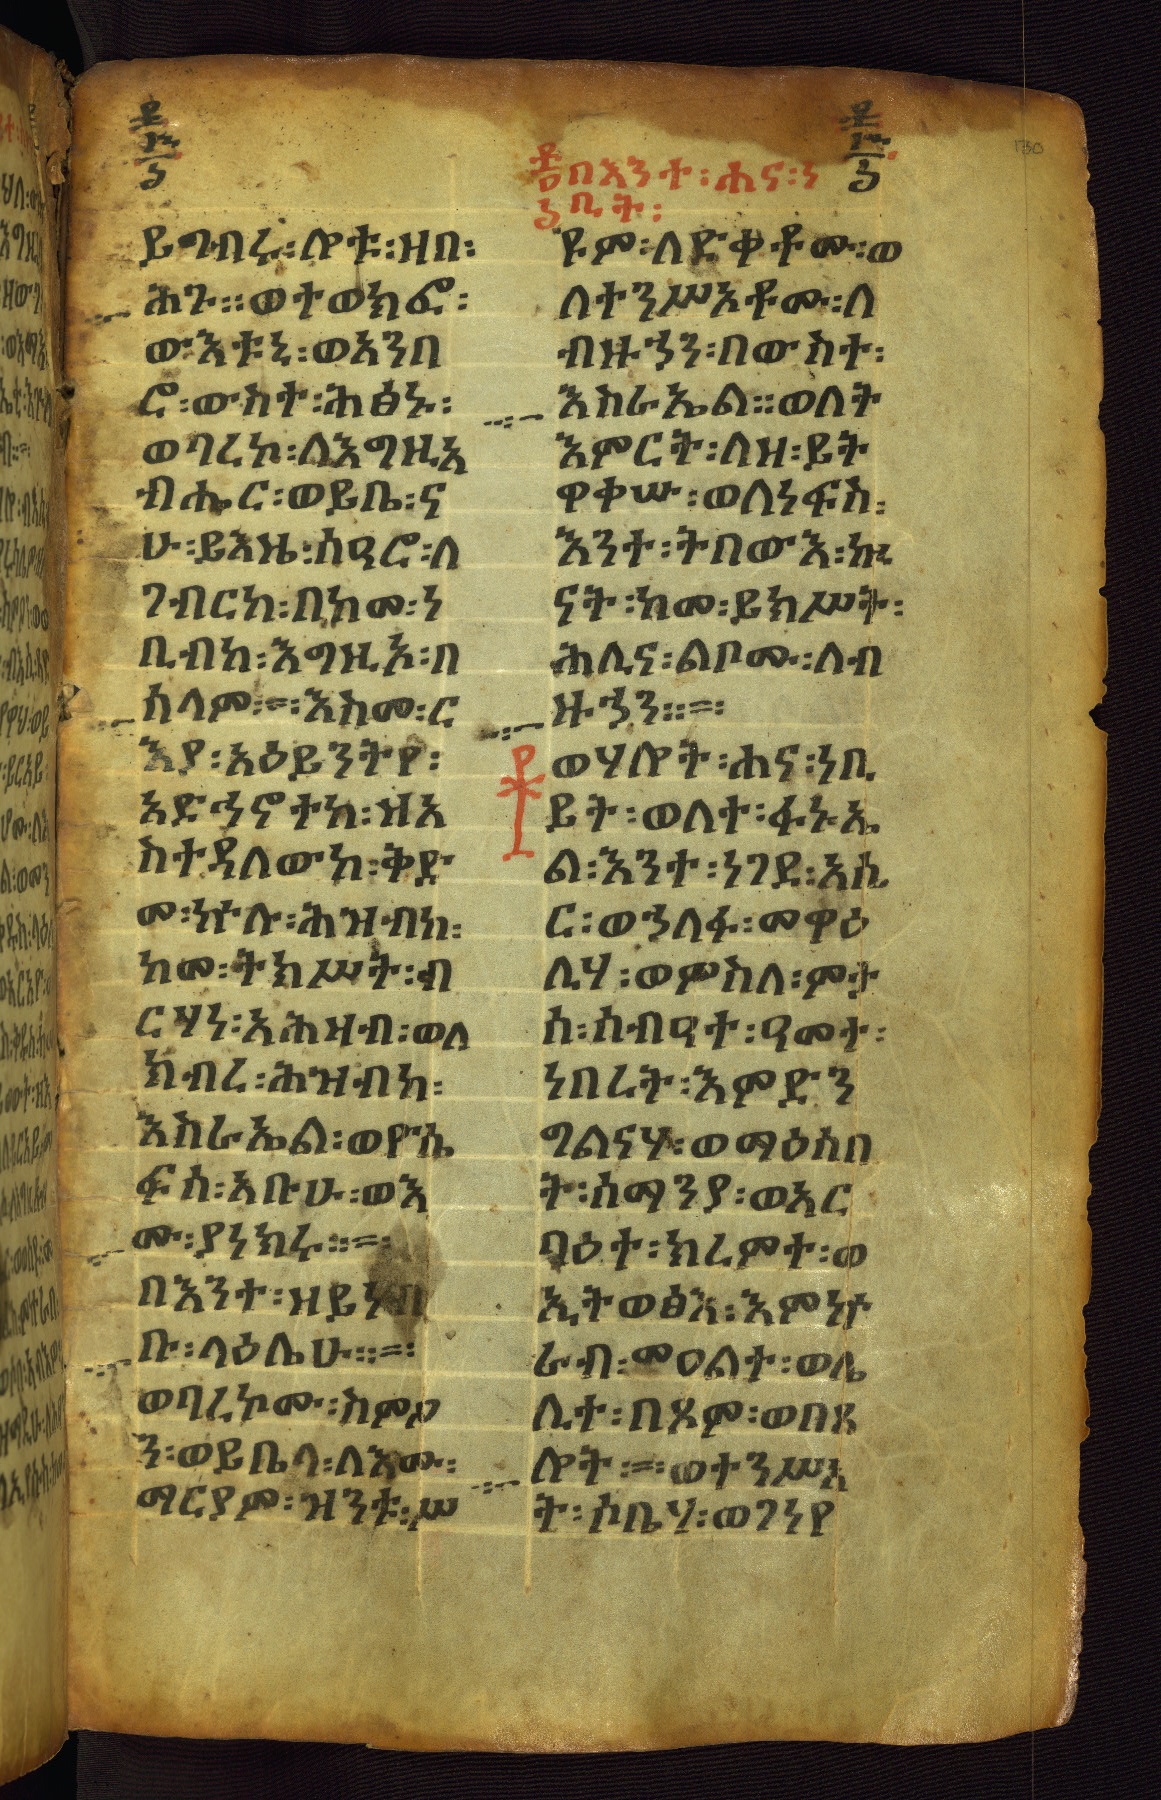 በእንተ፡ሐና፡ነ
ቢት፡
ይግብሩ፡ሎቱ፡ዘበ፡
ሕጉ፡፡ወተወክፎ፡
ውእቱኒ፡ወአንበ
ሮ፡ውስተ፡ሕፅኑ፡
ወባረኮ፡ለእግዚአ
ብሔር፡ወይቤ፡ና
ሁ፡ይእዜ፡ስዓሮ፡ለ
ገብርከ፡በከመ፡ነ
ቢብከ፡እግዚኦ፡በ
ሰላም፡=፡እስመ፡ር
እያ፡አዕይንትየ፡
አድኅኖተከ፡ዝአ
ስተዳለውከ፡ቅድ
መ፡ኵሉ፡ሕዝብከ፡
ከመ፡ትክሥት፡ብ
ርሃነ፡አሕዛብ፡ወለ
ክብረ፡ሕዝብከ፡
እስራኤል፡ወዮሴ
ፍሰ፡አቡሁ፡ወእ
ሙ፡ያነክሩ፡፡=፡
በእንተ፡ዘይነብ
ቡ፡ላዕሌሁ፡፡=፡
ወባረኮሙ፡ስምዖ
ን፡ወይቤላ፡ለእሙ፡
ማርያም፡ዝንቱ፡ሥ
ዩም፡ለድቀቶሙ፡ወ
ለተንሥኦቶሙ፡ለ
ብዙኃን፡በውስተ፡
እስራኤል፡፡ወለት
እምርት፡ለዘ፡ይት
ዋቀሡ፡ወለነፍስ፡
እንተ፡ትበውእ፡ኲ
ናት፡ከመ፡ይክሥት፡
ሕሊና፡ልቦሙ፡ለብ
ዙኃን፡፡=፡
ወሃሎት፡ሐና፡ነቢ
ይት፡ወለተ፡ፋኑኤ
ል፡እንተ፡ነገደ፡አሴ
ር፡ወኅለፋ፡መዋዕ
ሊሃ፡ወምስለ፡ምት
ሰ፡ሰብዓተ፡ዓመተ፡
ነበረት፡እምድን
ግልናሃ፡ወማዕሰበ
ት፡ሰማንያ፡ወአር
ባዕተ፡ክረምተ፡ወ
ኢትወፅእ፡እምኵ
ራብ፡መዐልተ፡ወሌ
ሊተ፡በጾም፡ወበጸ
ሎት፡=፡ወተንሥአ
ት፡ሶቤሃ፡ወገነየ